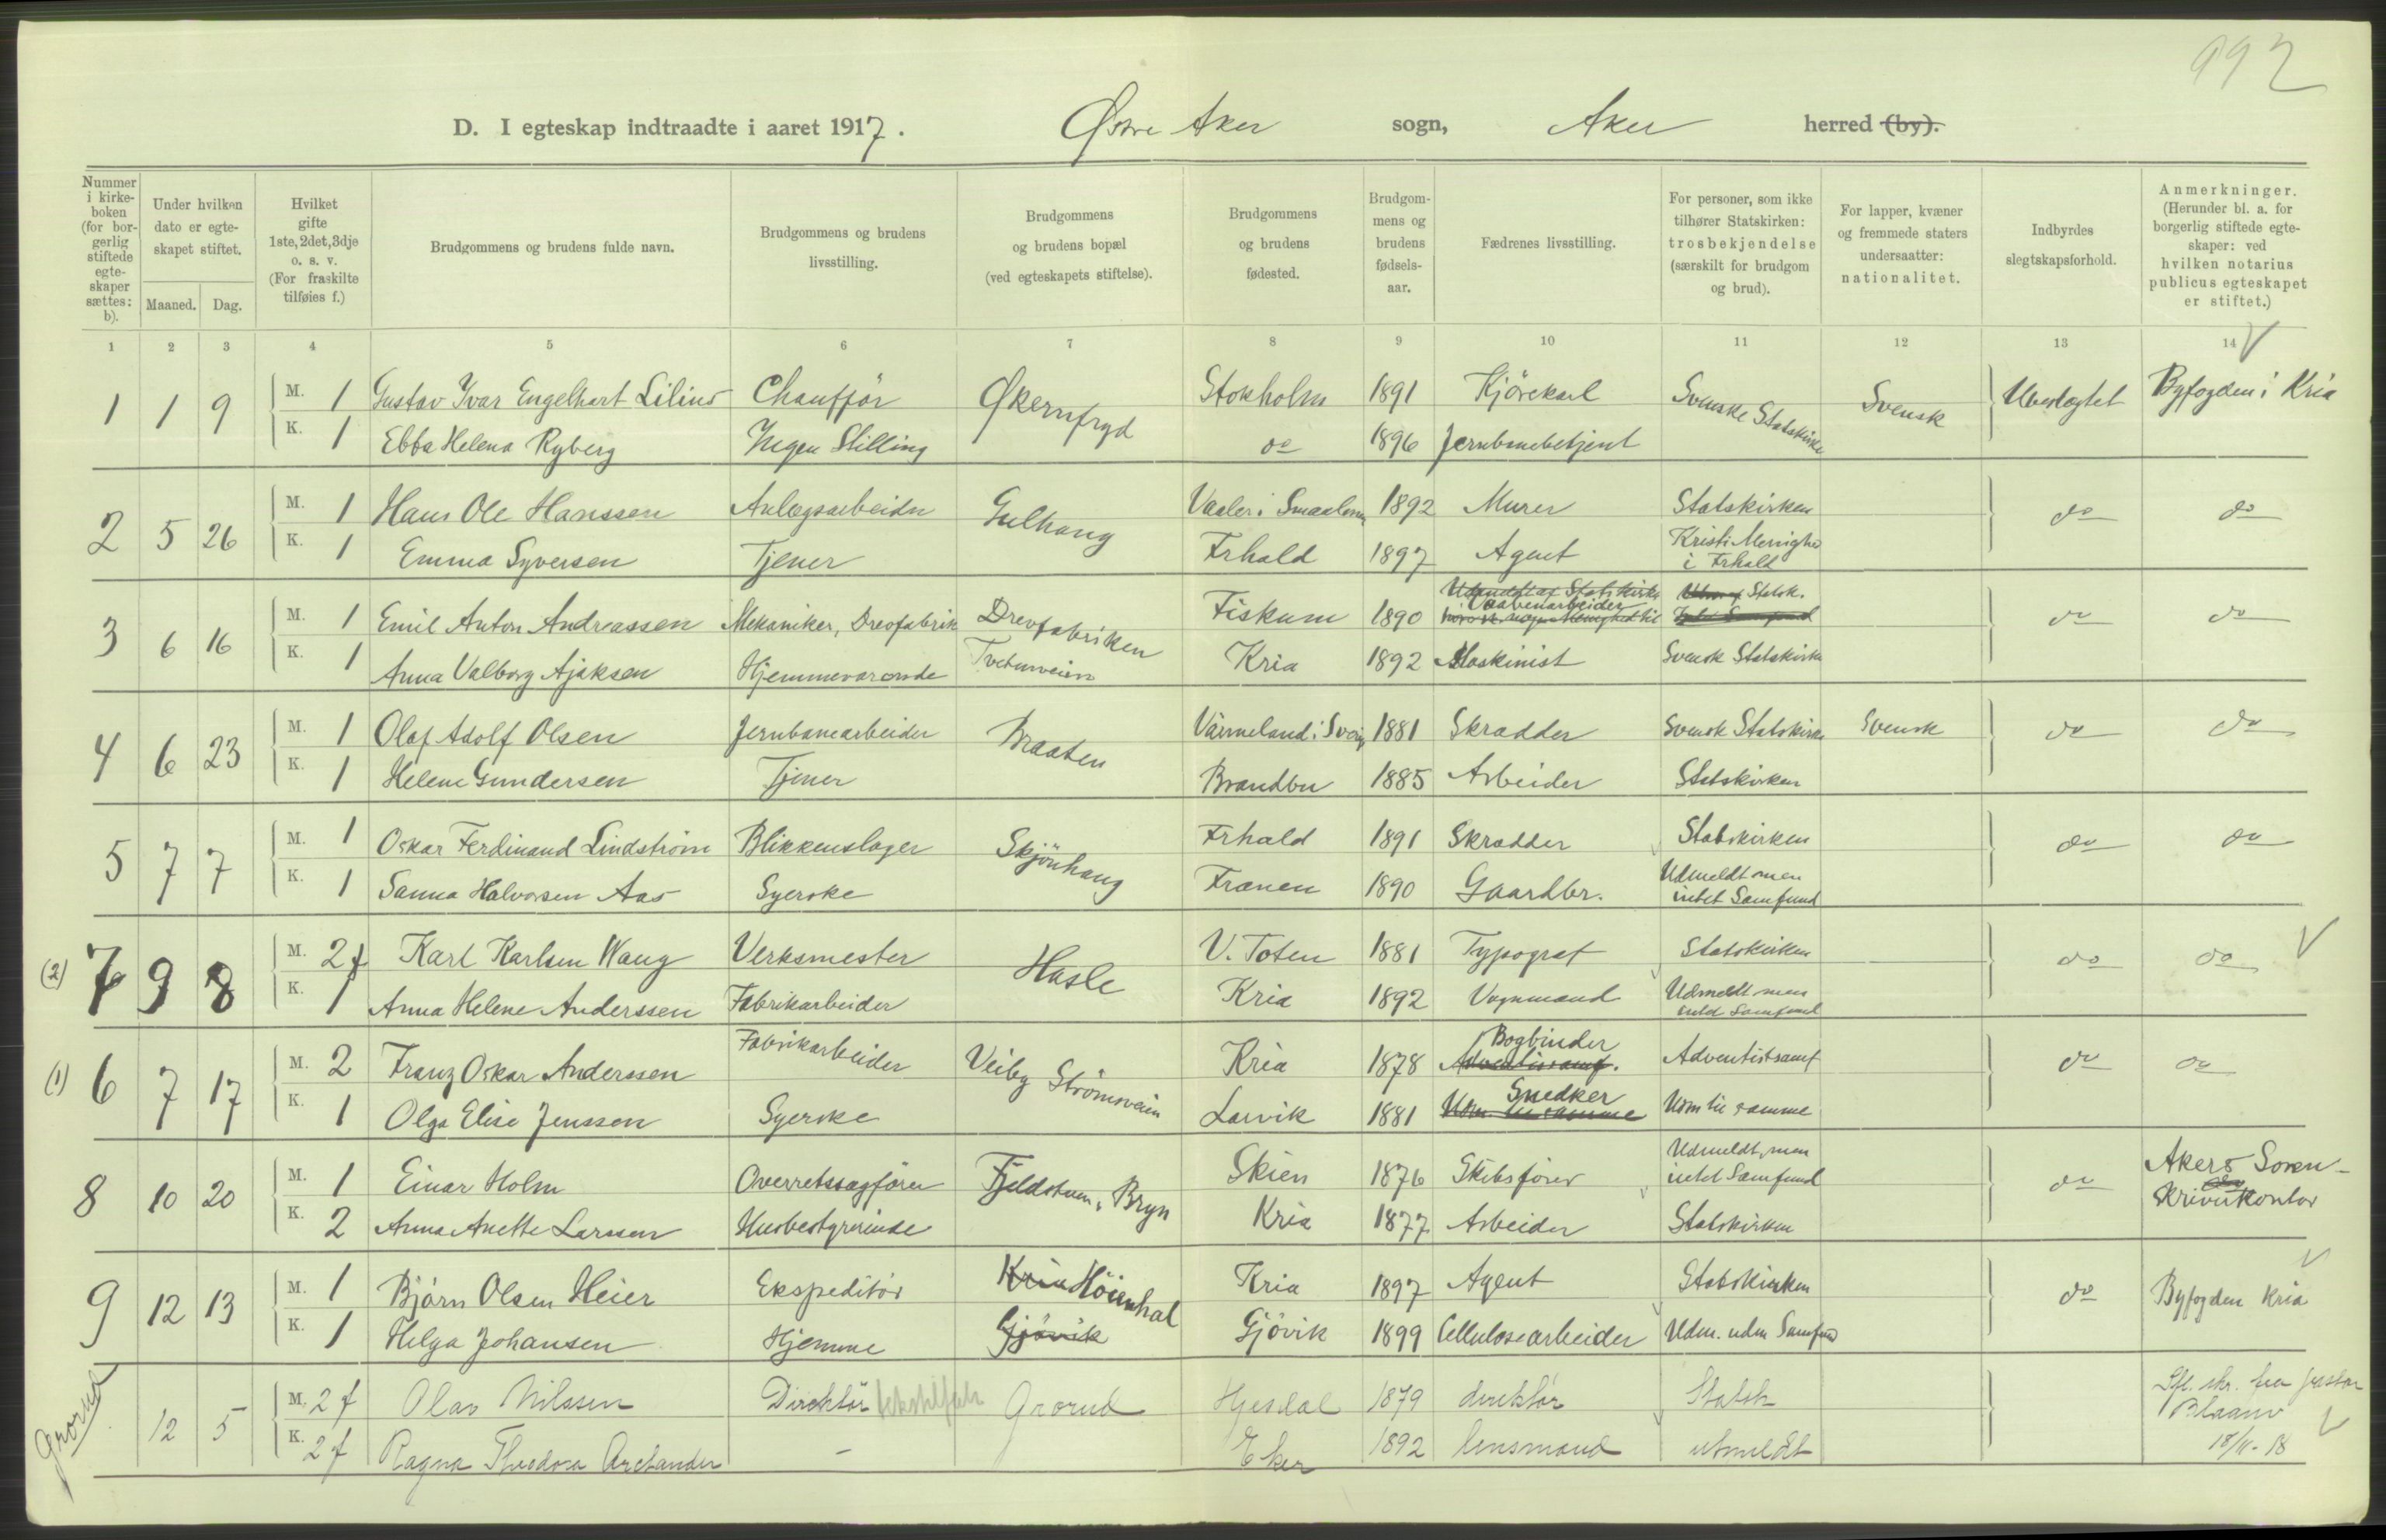 992
D. I egteskap indtraadte i aaret 1917. Østre Aker sogn, Aker herred (by).
Nummer i kirkeboken (for borgerlig stiftede egteskaper sættes: b).
Under hvilken dato er egteskapet stiftet.
Maaned. Dag.
Hvilket gifte 1ste, 2det, 3dje o. s. v. (For fraskilte tilføies f.)
Brudgommens og brudens fulde navn.
Brudgommens og brudens livsstilling.
Brudgommens og brudens bopæl (ved egteskapets stiftelse).
Brudgommens og brudens fødested.
Brudgommens og brudens fødselsaar.
Fædrenes livsstilling.
For personer, som ikke tilhører Statskirken: trosbekjendelse (særskilt for brudgom og brud).
For lapper, kvæner og fremmede staters undersaatter: nationalitet.
Indbyrdes slegtskapsforhold.
Anmerkninger. (Herunder bl. a. for borgerlig stiftede egteskaper: ved hvilken notarius publicus egteskapet er stiftet.)
1 2 3 4 5 6 7 8 9 10 11 12 13 14
1 1 9 M. 1 Gustav Ivar Engelhart Lilius Chaufför Økernfryd Stokholm 1891 Kjörekarl Svenske Statskirke Svensk Ubeslægtet Byfogden i Kria
K. 1 Ebba Helena Ryberg Ingen Stilling do 1896 Jernbanebetjent
2 5 26 M. 1 Hans Ole Hanssen Anlægsarbeider Gulhaug Vaaler i Smaalene 1892 Murer Statskirken do do
K. 1 Emma Syversen Tjener Frhald 1897 Agent Kristi Menighed i Frhald
3 6 16 M. 1 Emil Anton Andreassen Mekaniker, Drevfabrik Drevfabriken Fiskum 1890 Udmeldt af Statskirke Vaabenarbeider Statsk. do do
K. 1 Anna Valborg Ajaksen Hjemmeværende Tvetenveien Kria 1892 Maskinist Svensk Statskirke
4 6 23 M. 1 Olaf Adolf Olsen Jernbanearbeider Braaten Värmeland i Sverig 1881 Skrædder Svensk Statskirke Svensk do do
K. 1 Helene Gundersen Tjener Brandbu 1885 Arbeider Statskirken
5 7 7 M. 1 Oskar Ferdinand Lindström Blikkenslager Skjönhaug Frhald 1891 Skrædder Statskirken do do
K. 1 Sanna Halvorsen Aas Syerske Frænen 1890 Gaardbr. Udmeldt men intet Samfund
(2) 7 9 8 M. 2 f Karl Karlsen Waug Verksmester Hasle V. Toten 1881 Typograf Statskirken do do
K. 1 Anna Helene Anderssen Fabrikarbeider Kria 1892 Vognmand Udmeldt men intet Samfund
(1) 6 7 17 M. 2 Franz Oskar Anderssen Fabrikarbeider Veiby Strömsveien Kria 1878 Bogbinder Adventistsamf. Adventistsamf do do
K. 1 Olga Elise Jenssen Syerske Larvik 1881 Snedker Udm. til samme Udm til samme
8 10 20 M. 1 Einar Holm Overretssagförer Fjeldstuen, Bryn Skien 1876 Skibsförer Udmeldt, men intet Samfund do Akers Sorenskriverkontor
K. 2 Anna Anette Larssen Husbestyrerinde Kria 1877 Arbeider Statskirken
9 12 13 M. 1 Björn Olsen Heier Ekspeditör Kria Höienhal Kria 1897 Agent Statskirken do Byfogden Kria
K. 1 Helga Johansen Hjemme Gjövik Gjövik 1899 Cellulosearbeider Udm. uden Samfund
Grorud 12 5 M. 2 f Olav Nilssen Direktör Grorud Hjesdal 1879 direktör Statsk Efl. skr. fra pastor Blaauw 18/11-18
K. 2 f Ragna Theodora Arctander - Eker 1892 lensmand utmeldt